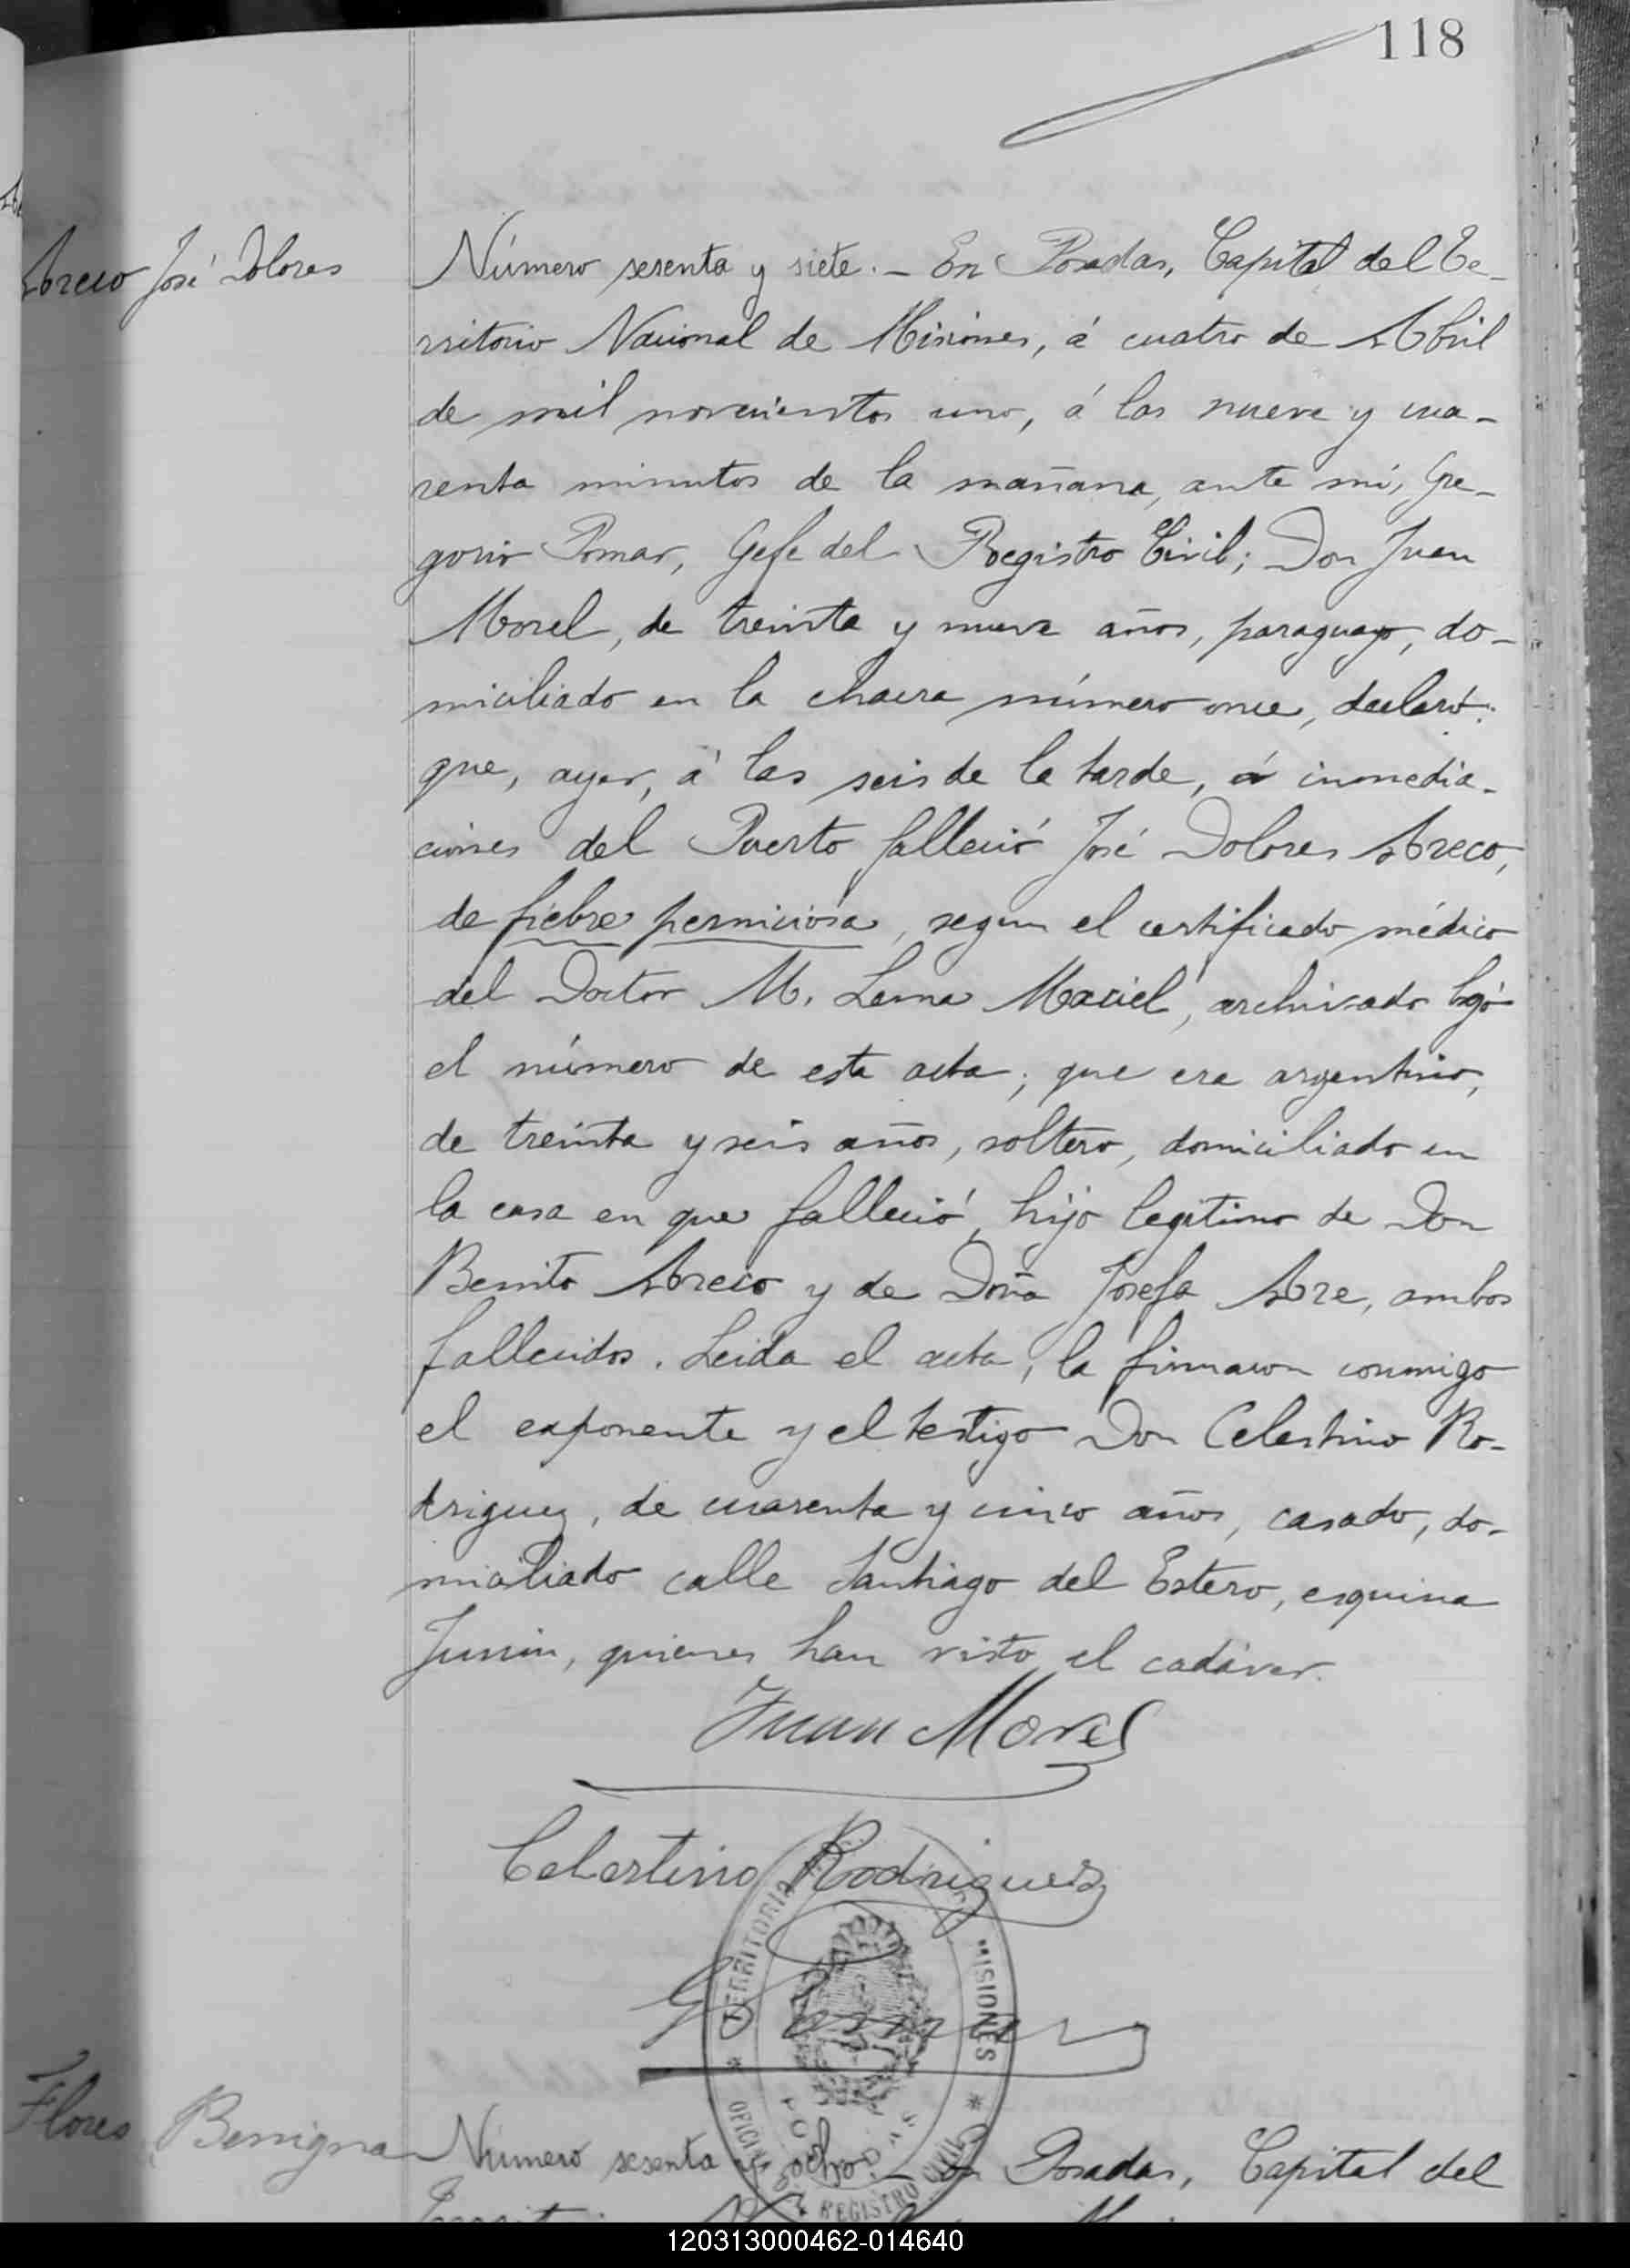 118
Areco José Dolores
Número sesenta y siete. – En Posadas, Capital del Te-
rritorio Nacional de Misiones, á cuatro de Abril
de mil novecientos uno, á las nueve y cua-
renta minutos de la mañana, ante mí, Gre-
gorio Pomar, Gefe del Registro Civil; Don Juan
Morel, de treinta y nueve años, paraguayo, do-
miciliado en la chacra número once, declaró:
que, ayer, á las seis de la tarde, á inmedia-
ciones del Puerto falleció José Dolores Areco,
de fiebre perniciosa, segun el certificado médico
del Doctor M. Lema Maciel, archivado bajo
el número de esta acta; que era argentino,
de treinta y seis años, soltero, domiciliado en
la casa en que falleció, hijo legitimo de Don
Benito Areco y de Doña Josefa Are, ambos
fallecidos. Leida el acta, la firmaron conmigo
el exponente y el testigo Don Celestino Ro-
driguez, de cuarenta y cinco años, casado, do-
miciliado calle Santiago del Estero, esquina
Junin, quienes han visto el cadáver.
Juan Morel
Celestino Rodriguez
G Pomar
TERRITORIO MISIONES
OFICINA REGISTRO CIVIL
Flores Benigna
Número sesenta y ocho. – En Posadas, Capital del
120313000462-014640